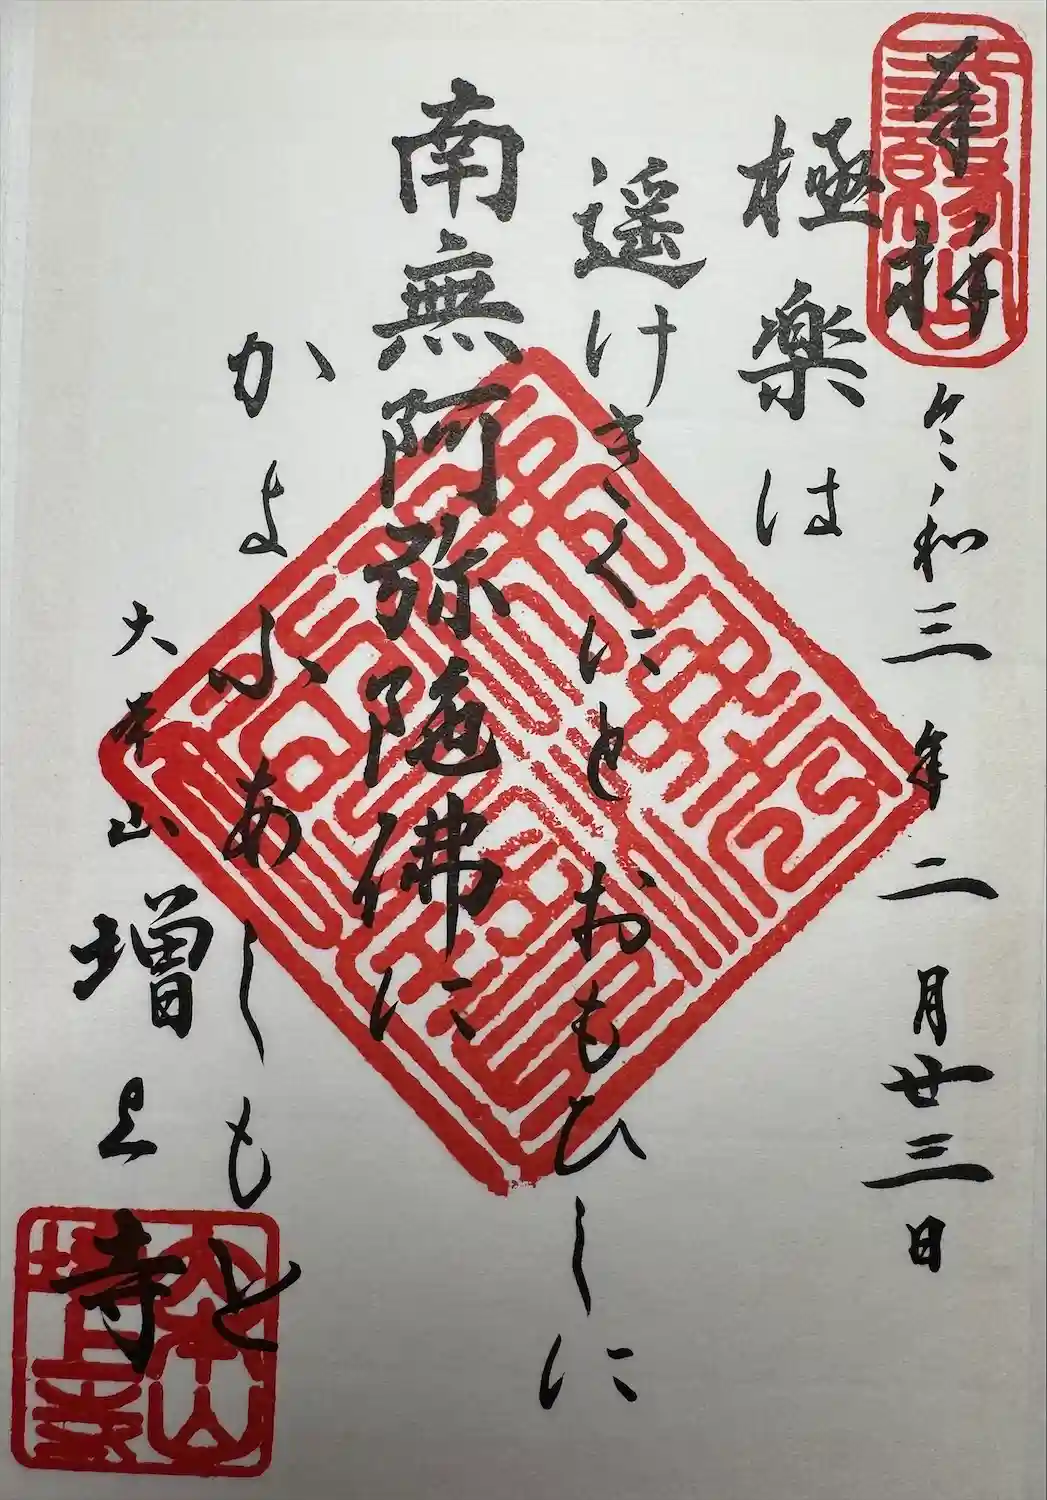 奉拝
令和三年二月廿三日
極楽は
遥けきくにとおもひしに
南無阿弥陀佛に
かよふあしもと
大本山 増上寺
大本山
増上寺